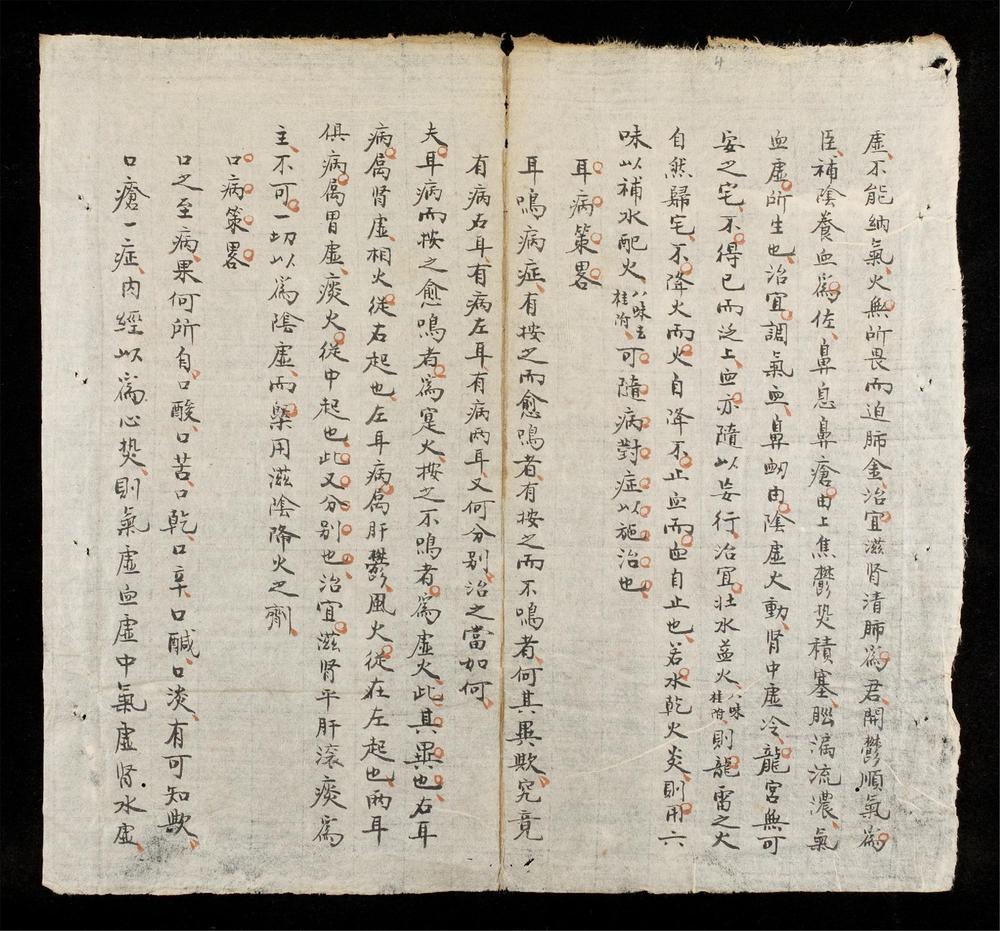 4
虛、不能納氣、火無所畏而迫肺金、治宜滋肾清肺爲君開鬱順氣爲
臣、補陰養血爲佐、鼻息鼻瘡由上焦鬱热積塞、腦漏流濃、氣
血虛所生也、治宜調氣血、鼻衂由陰虛火動、肾中虛冷、龍宮無可
安之宅、不得已而泛上、血亦隨以妄行、治宜壯水益火、八味桂附、則龍雷之火
自然歸宅、不降火而火自降不止血而血自止也、若水乾火炎、則用六
味以補水配火、八味去桂附、可隨病對症以施治也
耳病策畧
耳鳴病症、有按之而愈鳴者、有按之而不鳴者、何其異欤、究竟
有病右耳、有病左耳、有病兩耳、又何分别、治之當如何、
夫耳病而按之愈鳴者、爲寔火、按之不鳴者、爲虛火、此其異也、右耳
病属肾虛、相火従右起也、左耳病属肝鬱、風火従在左起也、兩耳
俱病属胃虛、痰火従中起也、此又分别也、治宜滋肾平肝滚痰爲
主、不可一切以爲陰虛、而槩用滋陰降火之劑、
口病策畧
口之至病、果何所自、口酸、口苦、口乾、口辛、口醎、口淡、有可知欤、
口瘡一症、内經以爲心热、則氣虛血虛中氣虛肾水虛、